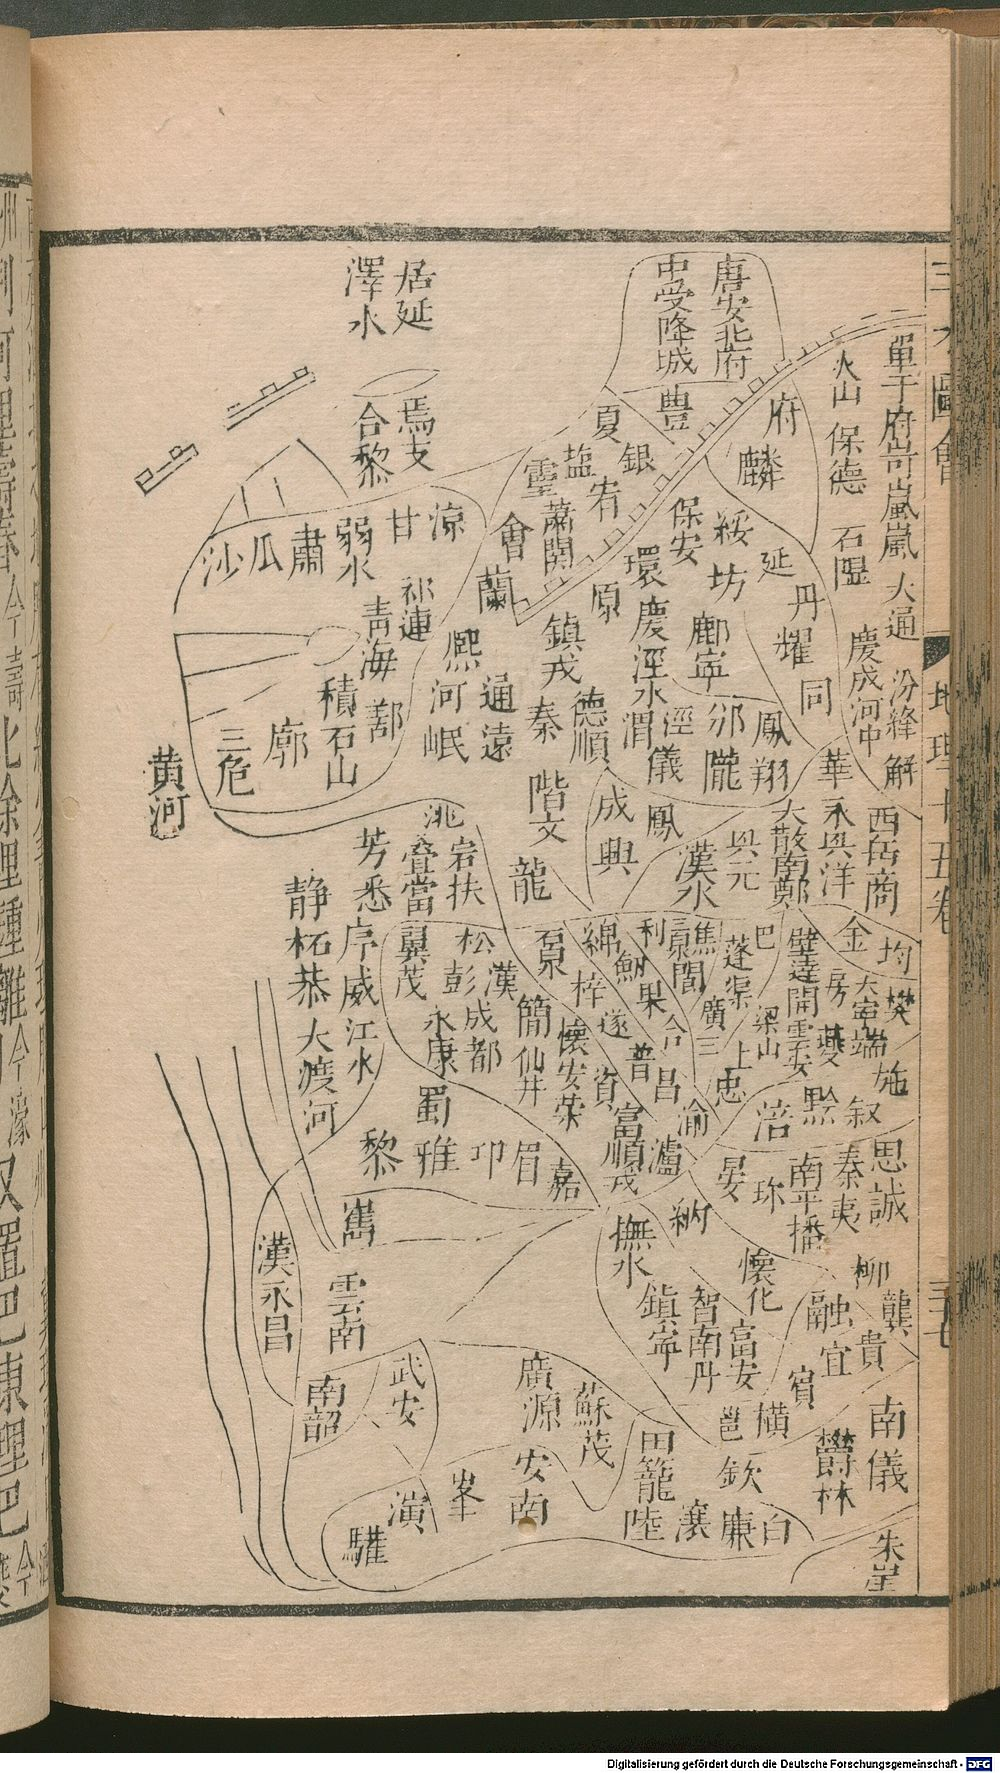 唐安北府
中受降城
居延
澤水
單于府岢嵐嵐
大通
火山
保德
石隰
慶成河中
汾絳
解
府
麟
豊
夏
銀
塩
宥
靈
蕭関
會
蘭
焉支
合黎
涼
甘
弱水
肅
瓜
沙
保安
綏
延
丹
坊
環
原
慶
鄜
寧
耀
同
涇水
渭
涇
儀
邠
隴
鳳翔
華
鎮戎
德順
秦
祁連
青海
熙
河
岷
通遠
鄯
積石山
廓
三危
黄河
階文
成
興
鳳
漢水
興元
大散南鄭
永興
洋
西岳
商
洮
岩
扶
叠
當
芳
悉
龍
静
柘
恭
序
威
翼
茂
松
彭
漢
永康
成都
江水
大渡河
綿
梓
利
果
閬
蓬
渠
巴
壁
達
開
雲安
金
房
均
大寧
夔
施
梁山
廣
合
遂
普
昌
資
簡
仙井
懷安
榮
富順
戎
瀘
渝
上
忠
涪
黔
叙
蜀
黎
雅
卭
眉
嘉
思
誠
秦
夷
南平
播
珎
晏
納
撫水
鎮寧
懷化
智
南丹
富安
柳
融
龔
貴
宜
賓
雟
雲南
漢永昌
南韶
武安
廣源
蘇茂
安南
峯
演
驩
田籠
陸
邕
橫
欽
廉
白
欝林
南
儀
朱崖
地理十五卷
Digitalisierung gefördert durch die Deutsche Forschungsgemeinschaft - DFG